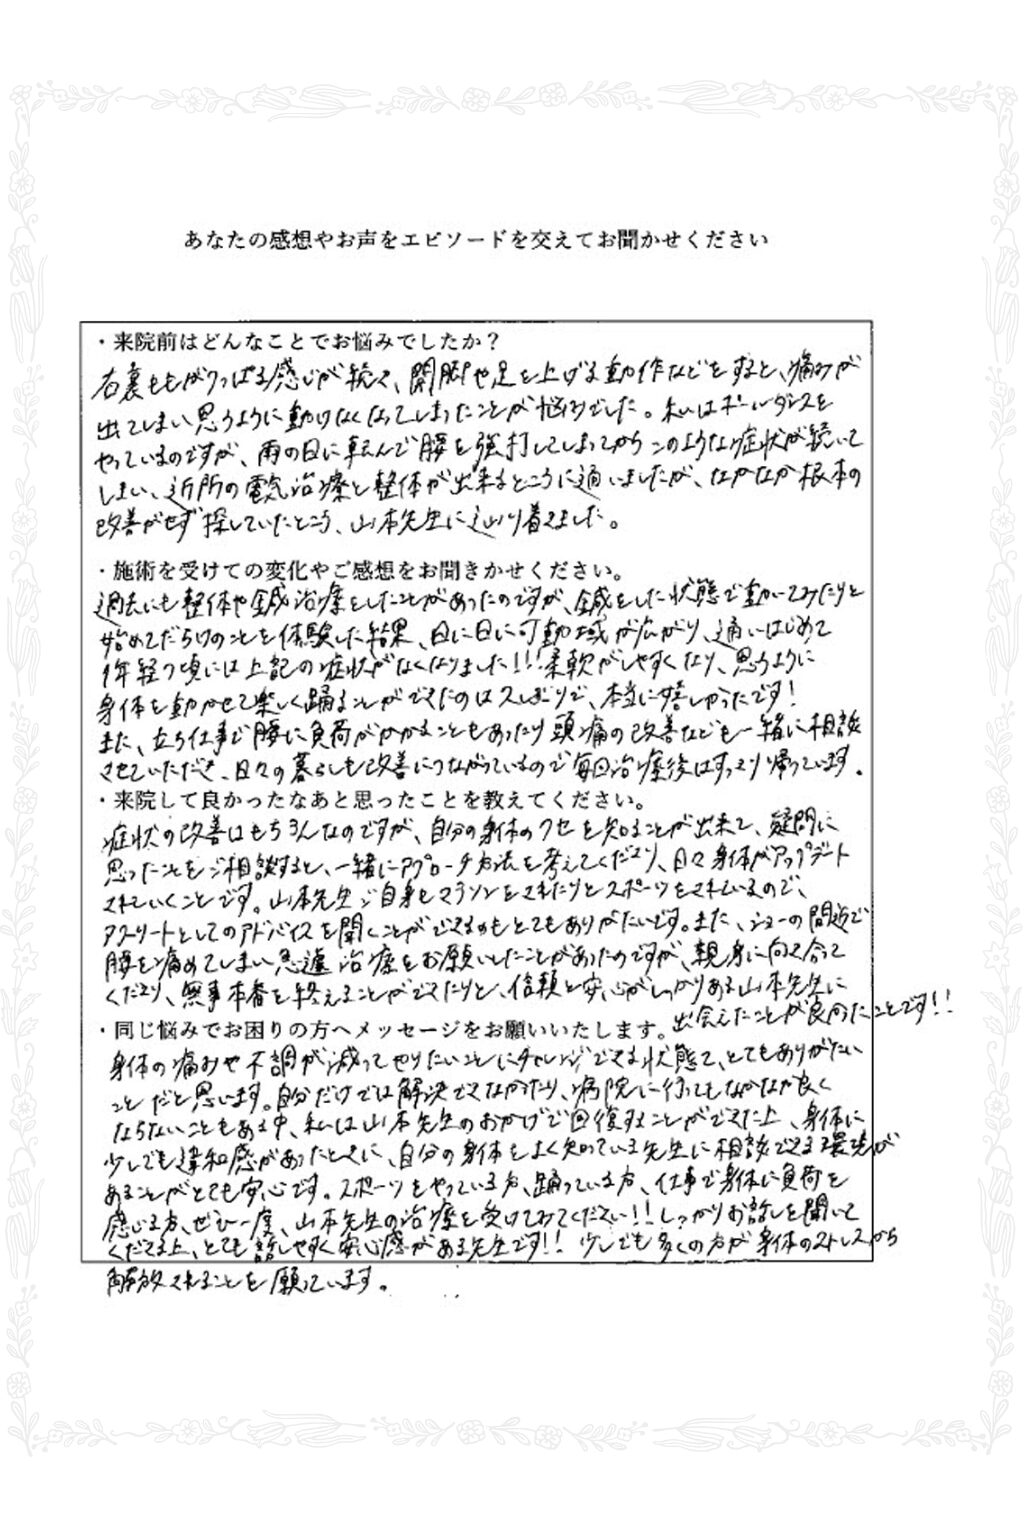 あなたの感想やお声をエピソードを交えてお聞かせください
・来院前はどんなことでお悩みでしたか？
右裏ももがつっぱる感じが続き、開脚や足を上げる動作などをすると、痛みが
出てしまい思うように動けなくなってしまったことが悩みでした。私はポールダンスを
やっているのですが、雨の日に転んで腰を強打してしまってからこのような症状が続いて
しまい、近所の電気治療と整体が出来るところに通いましたが、なかなか根本の
改善がせず探していたところ、山本先生に辿り着きました。
・施術を受けての変化やご感想をお聞きかせください。
過去にも整体や鍼治療をしたことがあったのですが、鍼をした状態で動いてみたりと
始めてだらけのことを体験した結果、日に日に可動域が広がり、通いはじめて
1年経つ頃には上記の症状がなくなりました!!!柔軟がしやすくなり、思うように
身体を動かせて楽しく踊ることができたのは久しぶりで、本当に嬉しかったです!
また、立ち仕事で腰に負荷がかかることもあったり頭痛の改善なども一緒に相談
させていただき、日々の暮らしも改善につながっているので毎回治療後はすっきり帰っています。
・来院して良かったなあと思ったことを教えてください。
症状の改善はもちろんなのですが、自分の身体のクセを知ることが出来て、疑問に
思ったことをご相談すると、一緒にアプローチ方法を考えてくださり、日々身体がアップデート
されていくことです。山本先生ご自身もマラソンをされたりとスポーツをされているので、
アスリートとしてのアドバイスを聞くことができるのもとてもありがたいです。また、ショーの間近で
腰を痛めてしまい急遽治療をお願いしたことがあったのですが、親身に向き合って
くださり、無事本番を終えることができたりと、信頼と安心がしっかりある山本先生に
出会えたことが良かったことです!!
・同じ悩みでお困りの方へメッセージをお願いいたします。
身体の痛みや不調が減ってやりたいことにチャレンジできる状態て、とてもありがたい
ことだと思います。自分だけでは解決できなかったり、病院に行ってもなかなか良く
ならないこともある中、私は山本先生のおかげで回復することができた上、身体に
少しでも違和感があったときに、自分の身体をよく知っている先生に相談できる環境が
あることがとても安心です。スポーツをやっている方、踊っている方、仕事で身体に負荷を
感じる方、ぜひ一度、山本先生の治療を受けてみてください!!しっかりお話しを聞いて
くださる上、とても話しやすく安心感がある先生です!! 少しでも多くの方が身体のストレスから
解放されることを願っています。